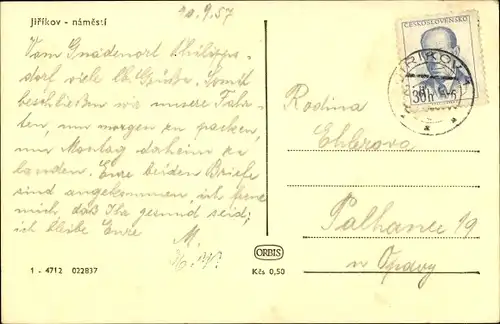 20.9.57
Jiříkov - náměstí
Vom Gnadenort Philipps-
dorf viele lb. Grüße. Somit
beschließen wir unsere Fahr-
ten, um morgen zu packen,
um Montag daheim zu
landen. Eure beiden Briefe
sind angekommen, ich freue
mich, daß Ihr gesund seid;
ich bleibe Eure
M.
1 - 4712 022837
ORBIS
Kčs 0,50
ČESKOSLOVENSKO
30 h
JIŘÍKOV
Rodina
Ehlerova
Palhanec 19
u Opavy